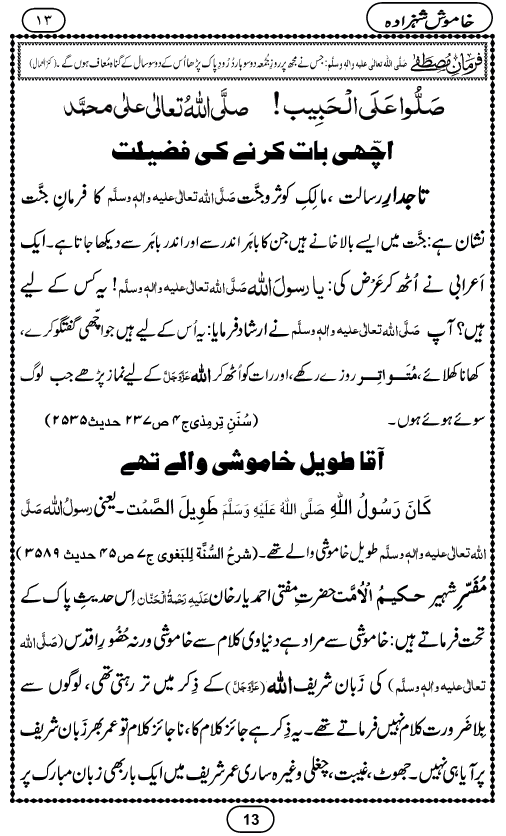 خاموش شہزادہ
۱۳
فرمانِ مصطفٰے صلَّی اللہ تعالٰی علیہ واٰلہٖ وسلَّم: جس نے مجھ پر روزِ جُمُعہ دو سو بار دُرُود پاک پڑھا اُس کے دو سو سال کے گناہ مُعاف ہوں گے۔ (کنز العمال)
صَلُّوا عَلَی الْحَبِیب! صلَّی اللہُ تعالیٰ علیٰ محمَّد
اچّھی بات کرنے کی فضیلت
تاجدارِ رسالت، مالِکِ کوثر و جنّت صَلَّی اللہ تعالٰی علیہ والہٖ وسلَّم کا فرمانِ جنّت
نشان ہے: جنّت میں ایسے بالا خانے ہیں جن کا باہَر اندر سے اور اندر باہَر سے دیکھا جاتا ہے۔ ایک
اَعرابی نے اُٹھ کر عَرْض کی: یا رسولَ اللہ صَلَّی اللہ تعالٰی علیہ والہٖ وسلَّم! یہ کس کے لیے
ہیں؟ آپ صَلَّی اللہ تعالٰی علیہ والہٖ وسلَّم نے ارشاد فرمایا: یہ اُس کے لیے ہیں جو اچّھی گفتگو کرے،
کھانا کھلائے، مُتَواتِر روزے رکھے، اور رات کو اُٹھ کر اللہ عَزَّوَجَلَّ کے لیے نماز پڑھے جب لوگ
سوئے ہوئے ہوں۔ (سُنَنِ تِرمِذی ج۴ ص۲۳۷ حدیث۲۵۳۵)
آقا طویل خاموشی والے تھے
کَانَ رَسُولُ اللہِ صَلَّی اللہُ عَلَیْہِ وَسَلَّمَ طَوِیلَ الصَّمْت۔ یعنی رسولُ اللہ صَلَّی
اللہ تعالٰی علیہ والہٖ وسلَّم طویل خاموشی والے تھے۔ (شرحُ السُّنَّة لِلبَغوی ج۷ ص۴۵ حدیث ۳۵۸۹)
مُفَسِّرِ شَہِیر حکیمُ الْاُمَّت حضرتِ مفتی احمد یار خان عَلَیْہِ رَحْمَةُ الْحَنَّان اِس حدیثِ پاک کے
تحت فرماتے ہیں: خاموشی سے مراد ہے دنیاوی کلام سے خاموشی ورنہ حُضُورِ اقدس (صَلَّی اللہ
تعالٰی علیہ والہٖ وسلَّم) کی زَبان شریف اللہ (عَزَّوَجَلَّ) کے ذِکر میں تر رہتی تھی، لوگوں سے
بِلا ضَرورت کلام نہیں فرماتے تھے۔ یہ ذِکر ہے جائز کلام کا، ناجائز کلام تو عمر بھر زَبان شریف
پر آیا ہی نہیں۔ جھوٹ، غیبت، چغلی وغیرہ ساری عمر شریف میں ایک بار بھی زبان مبارک پر
13